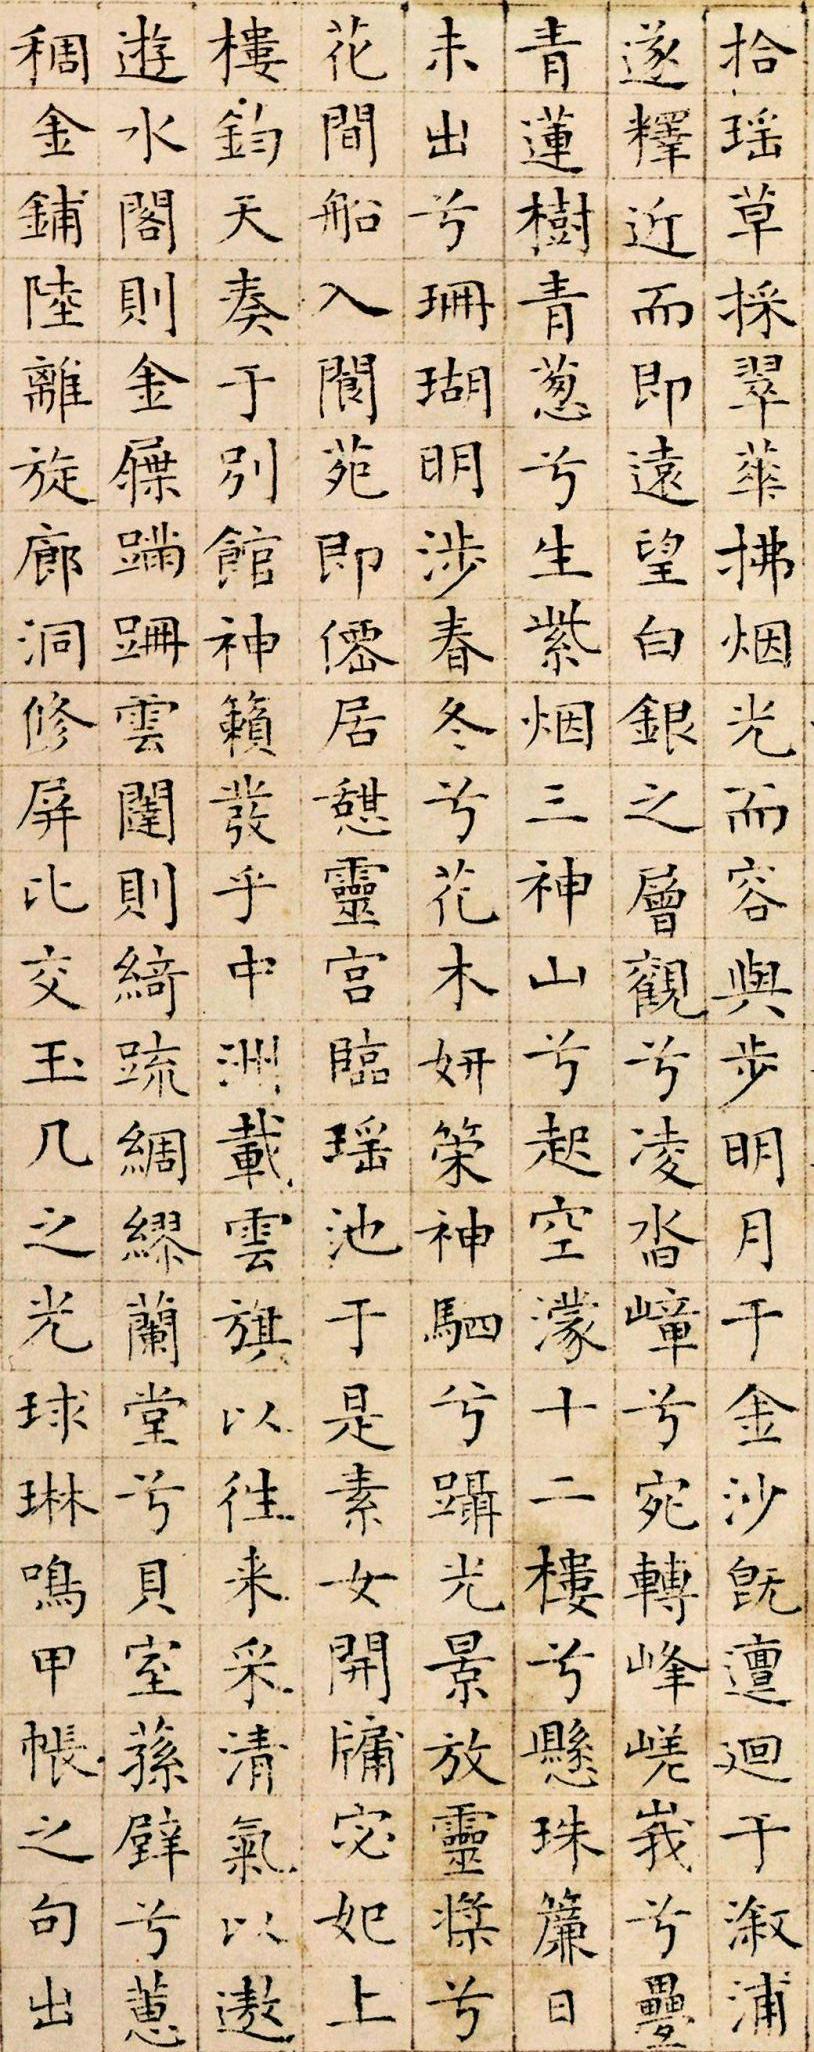 拾瑶草採翠華拂烟光而容與步明月于金沙既邅迴于溆浦
遂釋近而即遠望白銀之層觀兮凌沓嶂兮宛轉峰嵯峩兮疊
青蓮樹青葱兮生紫烟三神山兮起空濛十二樓兮懸珠簾日
未出兮珊瑚明涉春冬兮花木妍策神駟兮躡光景放靈槳兮
花間船入閬苑即僊居憩靈宫臨瑶池于是素女開牗宓妃上
樓鈞天奏于別館神籟發乎中洲載雲旗以往来采清氣以遨
遊水閣則金屧蹣跚雲闥則綺疏綢繆蘭堂兮貝室蓀壁兮蕙
稠金鋪陸離旋廊洞修屏比交玉几之光球琳鳴甲帳之句出